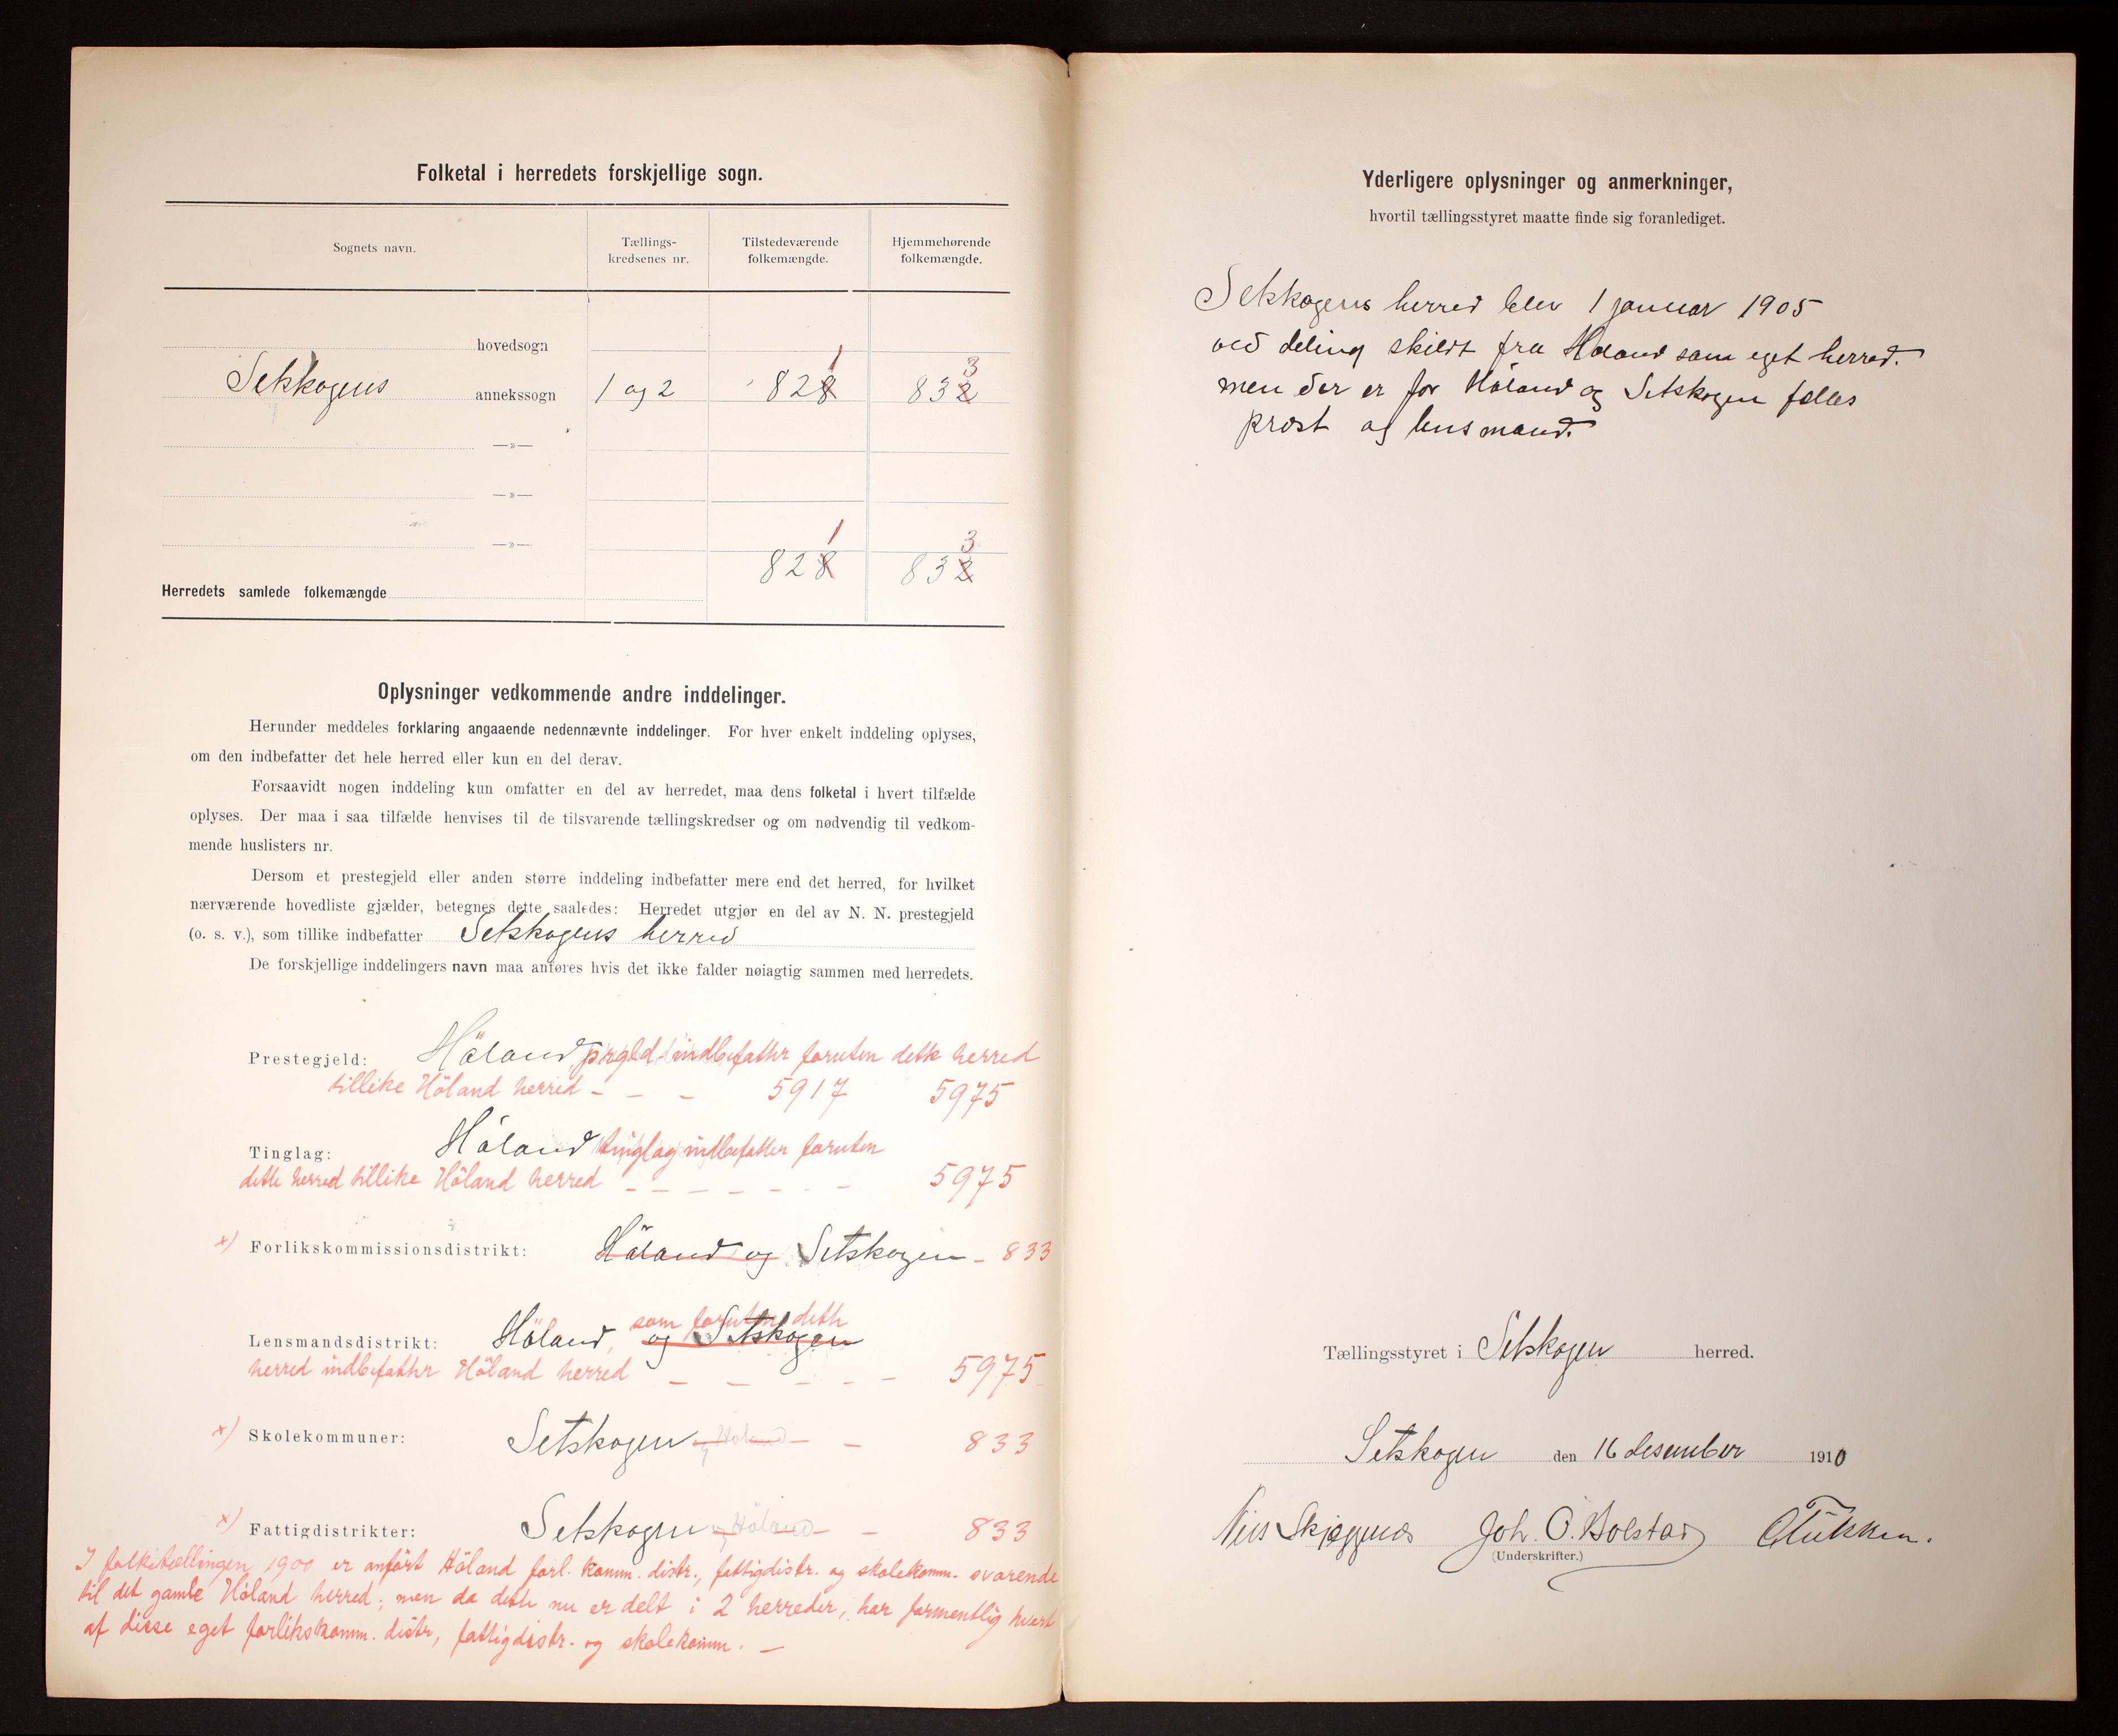 Folketal i herredets forskjellige sogn.
Sognets navn.
Tællings-
kredsenes nr.
Tilstedeværende
folkemængde.
Hjemmehørende
folkemængde.
hovedsogn
1 3
Setskogens annekssogn 1 og 2 828 832
—»—
—»—
—»—
1 3
828 832
Herredets samlede folkemængde
Oplysninger vedkommende andre inddelinger.
Herunder meddeles forklaring angaaende nedennævnte inddelinger. For hver enkelt inddeling oplyses,
om den indbefatter det hele herred eller kun en del derav.
Forsaavidt nogen inddeling kun omfatter en del av herredet, maa dens folketal i hvert tilfælde
oplyses. Der maa i saa tilfælde henvises til de tilsvarende tællingskredser og om nødvendig til vedkom-
mende huslisters nr.
Dersom et prestegjeld eller anden større inddeling indbefatter mere end det herred, for hvilket
nærværende hovedliste gjælder, betegnes dette saaledes: Herredet utgjør en del av N. N. prestegjeld
(o. s. v.), som tillike indbefatter Setskogens herred
De forskjellige inddelingers navn maa anføres hvis det ikke falder nøiagtig sammen med herredets.
Prestegjeld: Höland prgld indbefatter foruten dette herred
tillike Höland herred - - - 5917 5975
Tinglag: Höland tinglag indbefatter foruten
dette herred tillike Höland herred - - - - - - 5975
x) Forlikskommissionsdistrikt: Höland og Setskogen - 833
som foruten dette
Lensmandsdistrikt: Höland, og Setskogen
herred indbefatter Höland herred - - - - - 5975
x) Skolekommuner: Setskogen og Höland - - 833
x) Fattigdistrikter: Setskogen og Höland - - 833
I folketællingen 1900 er anført Höland forl. komm. distr., fattigdistr. og skolekomm. svarende
til det gamle Höland herred; men da dette nu er delt i 2 herreder, har formentlig hvert
af disse eget forlikskomm. distr, fattigdistr. og skolekomm. —
Yderligere oplysninger og anmerkninger,
hvortil tællingsstyret maatte finde sig foranlediget.
Setskogens herred blev 1 januar 1905
ved deling skildt fra Høland som eget herred.
men der er for Høland og Setskogen fælles
prest og lensmand.
Tællingsstyret i Setskogen herred.
Setskogen den 16 desember 1910
Nils Skjeggenæs Joh. O. Bolstad
(Underskrifter.)